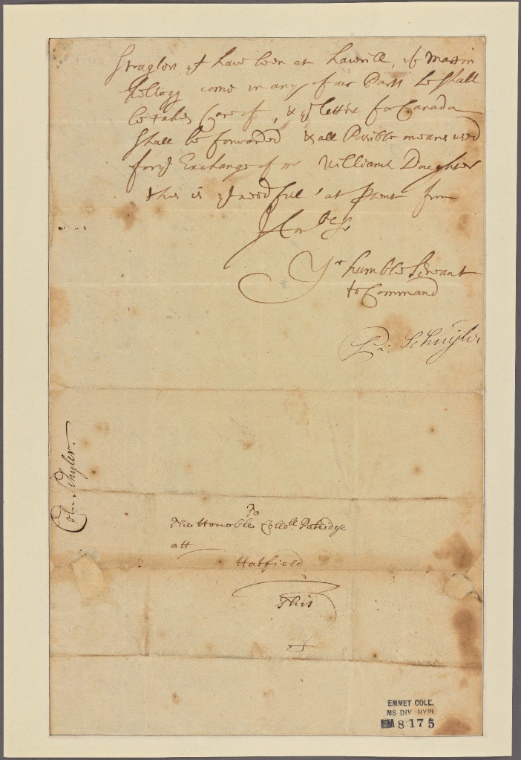 Straglers yt have been at Haverill, if Martin
Kellogg come in any of our Parts he shall
be taken Care of, & ye letter for Canada
shall be forwarded & all Posible means used
for ye Exchange of mr Williams Daughter
this is ye needfull at Psent from
Yr humble Servant
to Command
Pr: Schuyler
Coll: Schyler.
To
The Honorable Colloll Patridge
att
Hatfield
This
EMMET COLL.
MS DIV NYPL
EM 8175